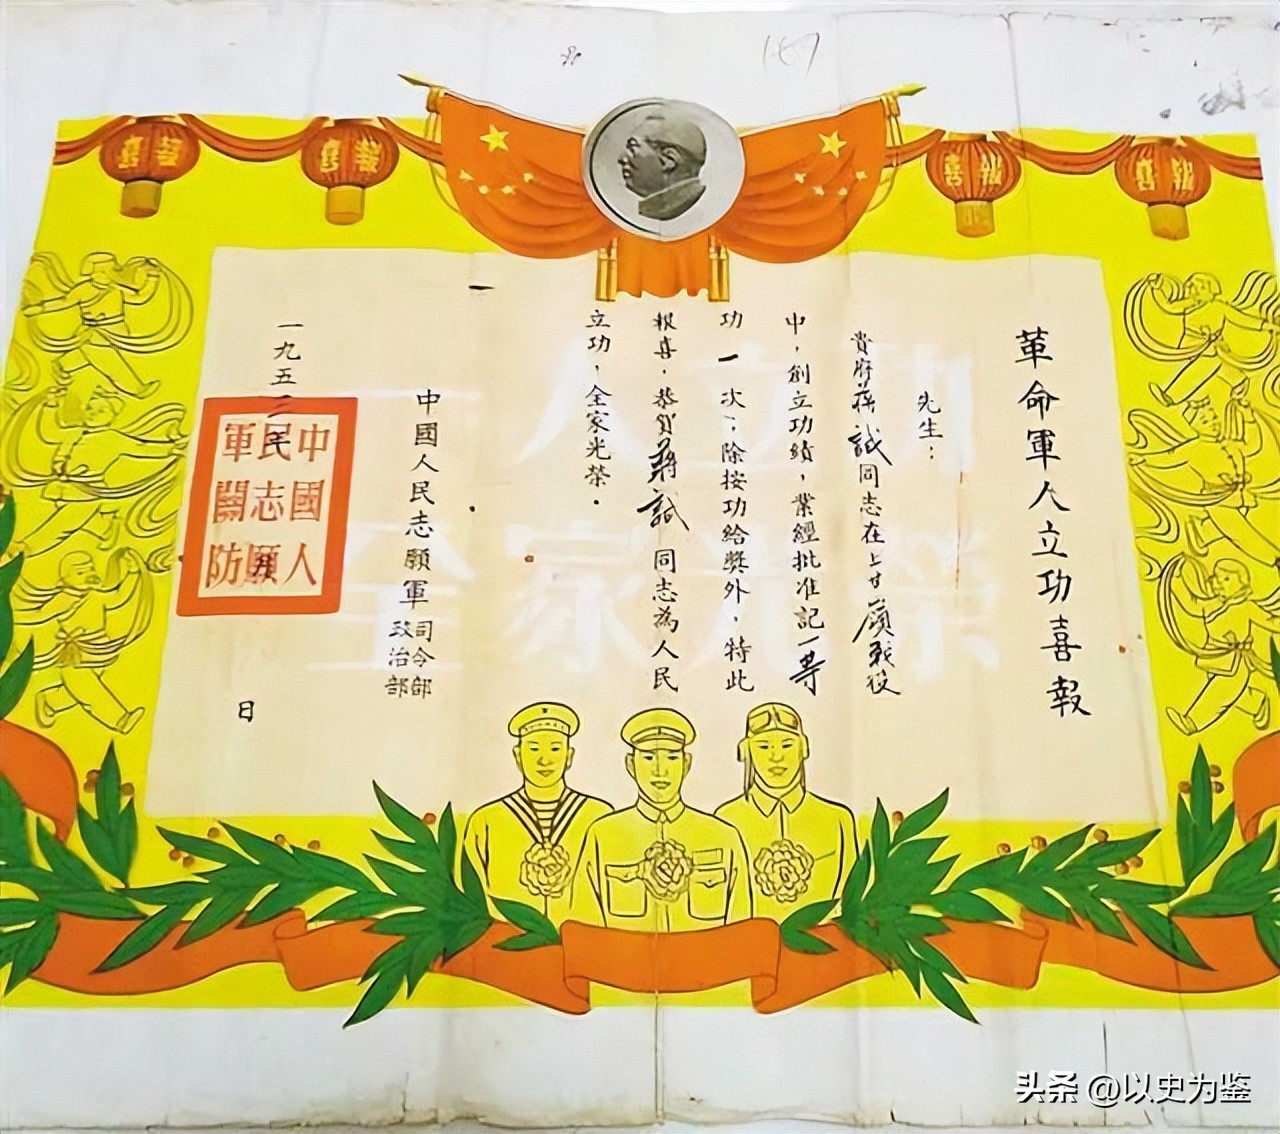 革命軍人立功喜報
先生：
貴府蔣誠同志在上甘嶺戰役
中，創立功績，業經批准記一等
功一次；除按功給獎外，特此
報喜，恭賀蔣誠同志為人民
立功，全家光榮．
中國人民志願軍司令部
政治部
一九五三年
日
中國人
民志願
軍關防
喜報
喜報
喜報
喜報
一人立功
全家光榮
头条 @以史为鉴